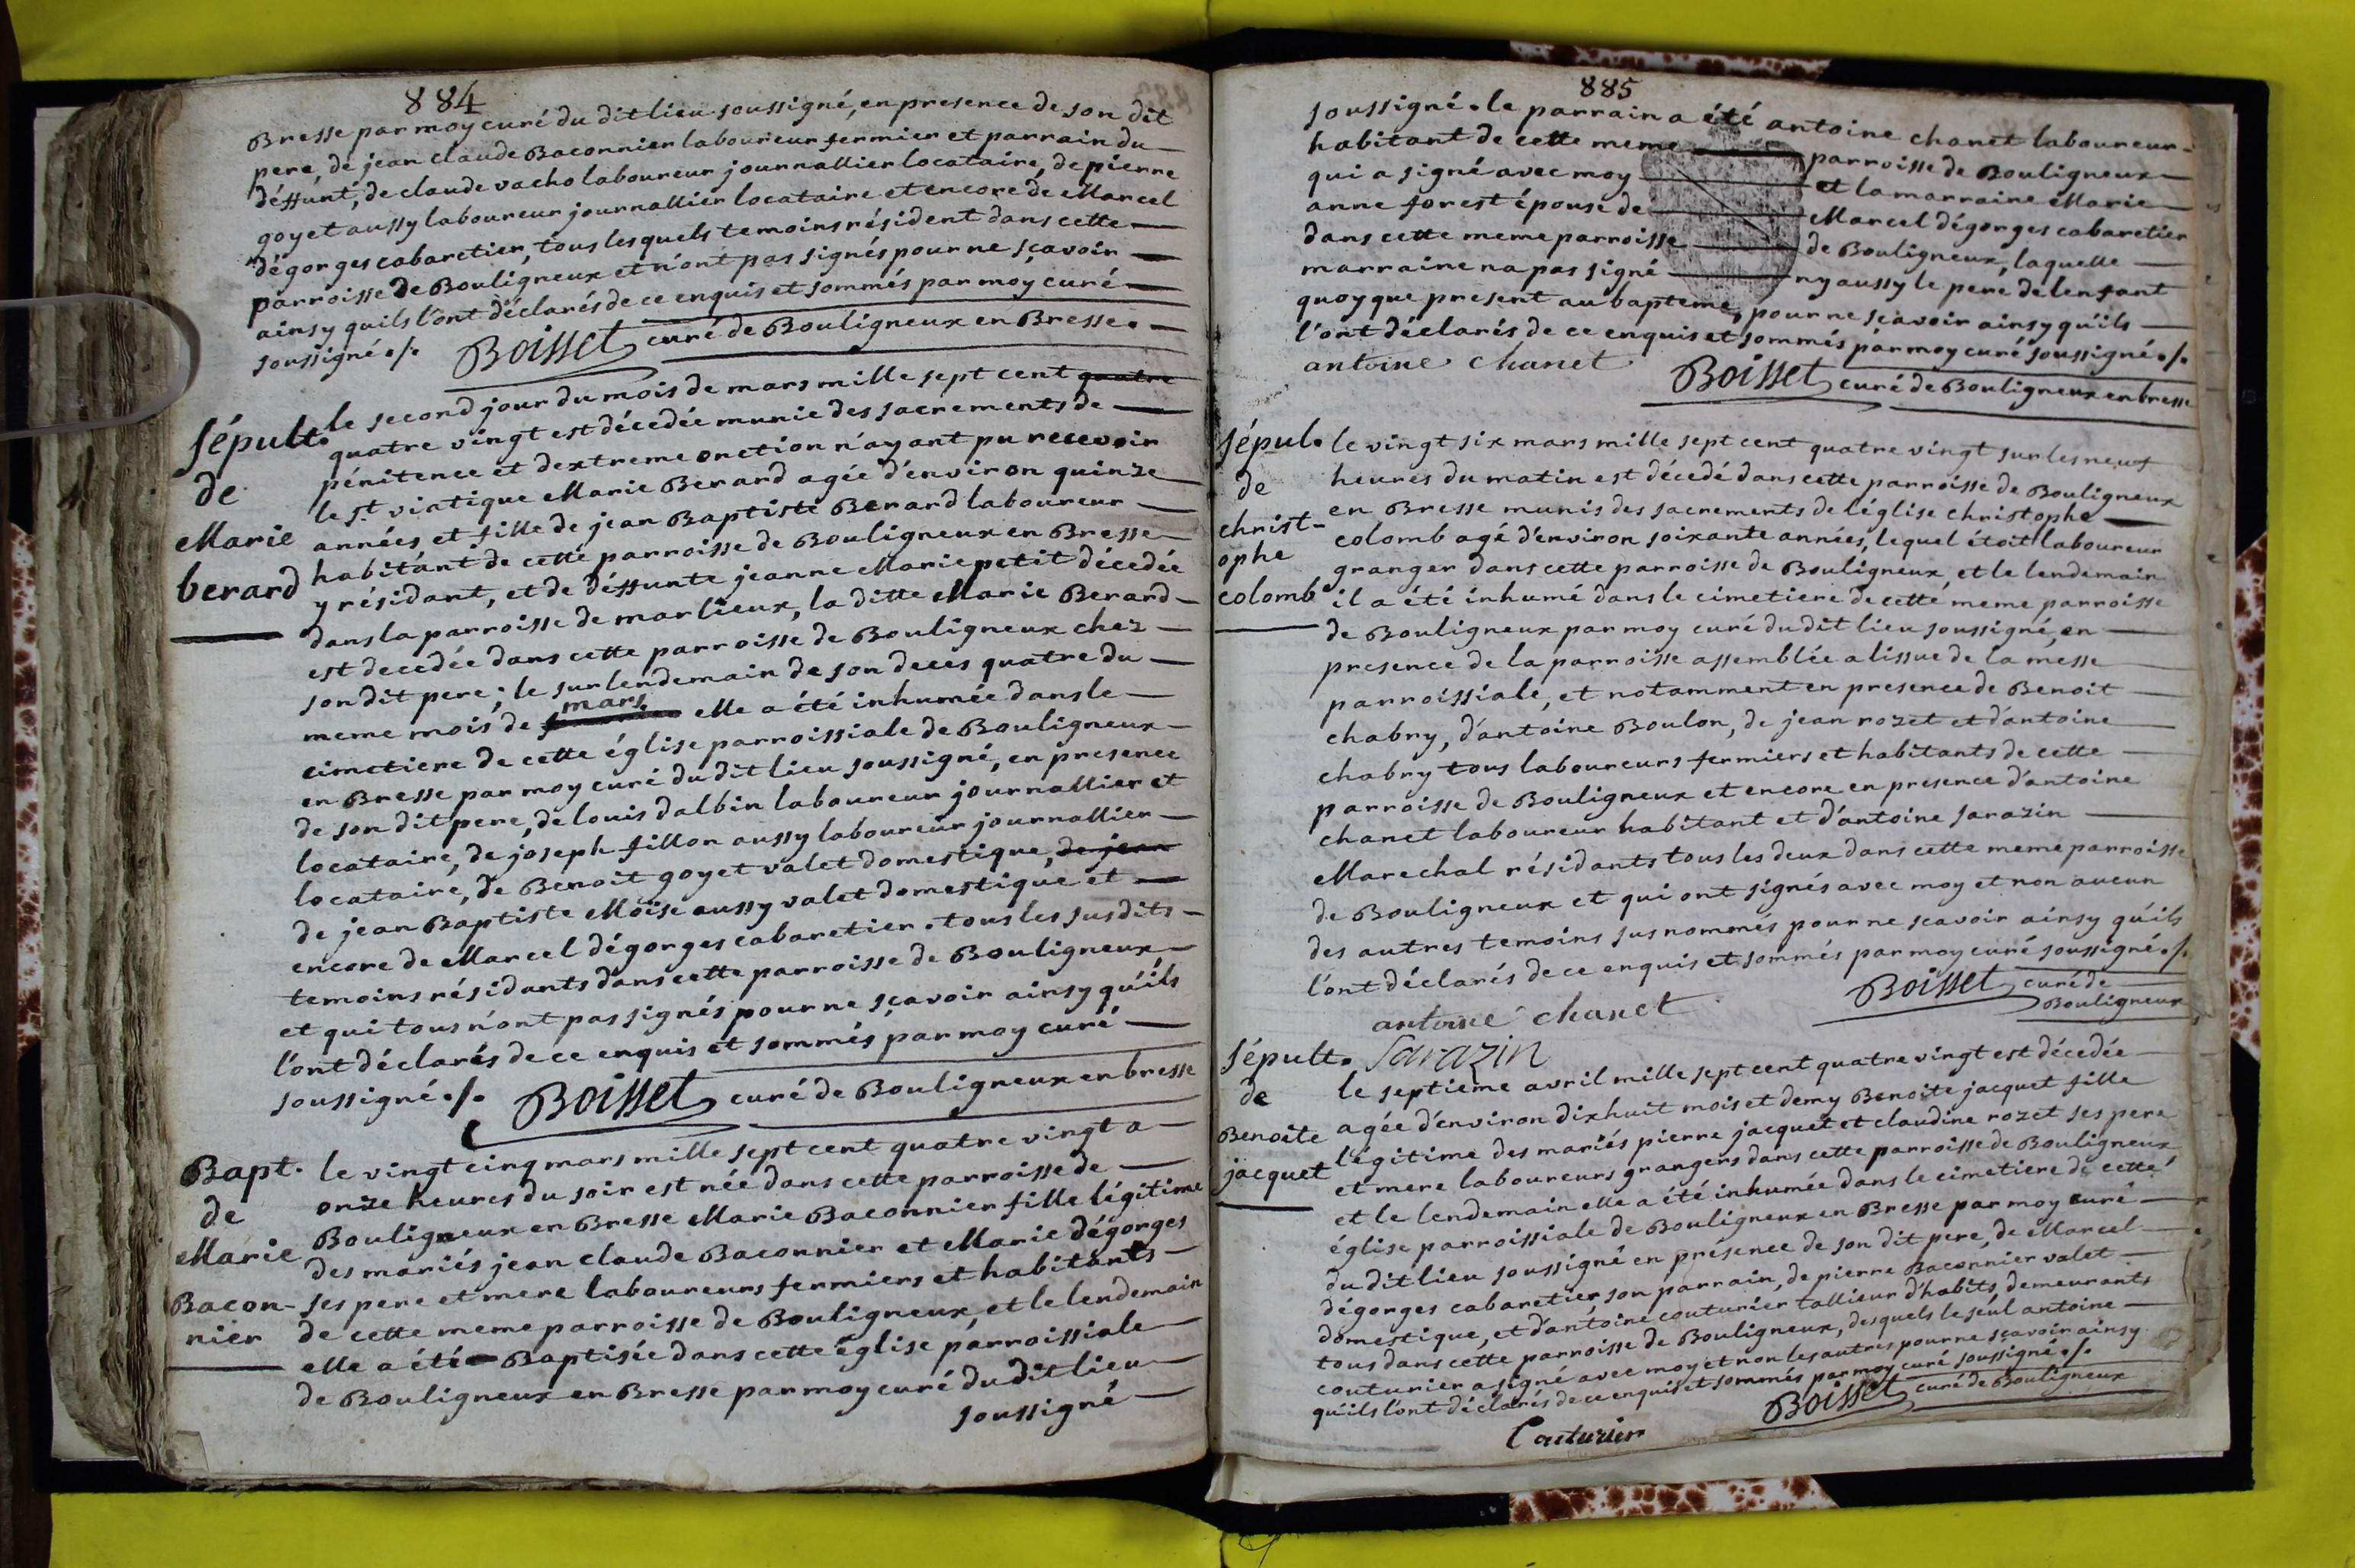 884
Bresse par moy curé du dit lieu soussigné, en presence de son dit
pere, de jean claude Baconnier laboureur fermier et parrain du
déffunt, de claude vacho laboureur journallier locataire, de pierre
goyet aussy laboureur journallier locataire et encore de Marcel
dégorges cabaretier, tous lesquels temoins résident dans cette
parroisse de Bouligneux et n'ont pas signés pour ne sçavoir
ainsy quils l'ont déclarés de ce enquis et sommés par moy curé
soussigné ./. Boisset curé de Bouligneux en Bresse.
Sépult.
de
Marie
berard
le second jour du mois de mars mille sept cent quatre
quatre vingt est décedée munie des sacrements de
pénitence et dextreme onction n'ayant pu recevoir
le st. viatique Marie Berard agée d'environ quinze
années et fille de jean Baptiste Berard laboureur
habitant de cette parroisse de Bouligneux en Bresse
y résidant, et de déffunte jeanne Marie petit décedée
dans la parroisse de marlieux, la ditte Marie Berard
est decedée dans cette parroisse de Bouligneux chez
son dit pere ; le surlendemain de son deces quatre du
meme mois de mars elle a été inhumée dans le
cimetiere de cette église parroissiale de Bouligneux
en Bresse par moy curé du dit lieu soussigné, en presence
de son dit pere, de louis dalbin laboureur journallier et
locataire, de joseph fillon aussy laboureur journallier
locataire, de Benoit goyet valet domestique, de jean
de jean Baptiste Moïse aussy valet domestique et
encore de Marcel dégorges cabaretier. tous les susdits
temoins résidants dans cette parroisse de Bouligneux,
et qui tous n'ont pas signés pour ne sçavoir ainsy qu'ils
l'ont déclarés de ce enquis et sommés par moy curé
soussigné ./. Boisset curé de Bouligneux en bresse
Bapt.
de
Marie
Bacon-
nier
le vingt cinq mars mille sept cent quatre vingt a
onze heures du soir est née dans cette parroisse de
Bouligneux en Bresse Marie Baconnier fille légitime
des mariés jean claude Baconnier et Marie dégorges
ses pere et mere laboureurs fermiers et habitants
de cette meme parroisse de Bouligneux, et le lendemain
elle a été Baptisée dans cette église parroissiale
de Bouligneux en Bresse par moy curé du dit lieu
soussigné
885
soussigné. le parrain a été antoine chanet laboureur
habitant de cette meme parroisse de Bouligneux
qui a signé avec moy et la marraine Marie
anne forest épouse de Marcel dégorges cabaretier
dans cette meme parroisse de Bouligneux, laquelle
marraine na pas signé ny aussy le pere de lenfant
quoyque present au bapteme, pour ne sçavoir ainsy qu'ils
l'ont déclarés de ce enquis et sommés par moy curé soussigné ./.
antoine chanet Boisset curé de Bouligneux en bresse
Sépul.
de
christ-
ophe
colomb
le vingt six mars mille sept cent quatre vingt sur les neuf
heures du matin est décedé dans cette parroisse de Bouligneux
en Bresse munis des sacrements de léglise christophe
colomb agé d'environ soixante années, lequel étoit laboureur
granger dans cette parroisse de Bouligneux, et le lendemain
il a été inhumé dans le cimetiere de cette meme parroisse
de Bouligneux par moy curé du dit lieu soussigné, en
presence de la parroisse assemblée a lissue de la messe
parroissiale, et notamment en presence de Benoit
chabry, d'antoine Boulon, de jean rozet et d'antoine
chabry tous laboureurs fermiers et habitants de cette
parroisse de Bouligneux et encore en presence d'antoine
chanet laboureur habitant et d'antoine sarazin
Marechal résidants tous les deux dans cette meme parroisse
de Bouligneux et qui ont signés avec moy et non aucun
des autres temoins susnommés pour ne scavoir ainsy qu'ils
l'ont déclarés de ce enquis et sommés par moy curé soussigné ./.
antoine chanet Boisset curé de
Bouligneux
Sarazin
Sépult.
de
Benoite
jacquet
le septieme avril mille sept cent quatre vingt est décedée
agée d'environ dixhuit mois et demy Benoite jacquet fille
légitime des mariés pierre jacquet et claudine rozet ses pere
et mere laboureurs grangers dans cette parroisse de Bouligneux
et le lendemain elle a été inhumée dans le cimetiere de cette
église parroissiale de Bouligneux en Bresse par moy curé
du dit lieu soussigné en présence de son dit pere, de Marcel
dégorges cabaretier son parrain, de pierre Baconnier valet
domestique, et d'antoine couturier tallieur d'habits, demeurants
tous dans cette parroisse de Bouligneux, desquels le seul antoine
couturier a signé avec moy et non les autres pour ne sçavoir ainsy
qu'ils l'ont déclarés de ce enquis et sommés par moy curé soussigné ./.
Boisset curé de Bouligneux
Couturier